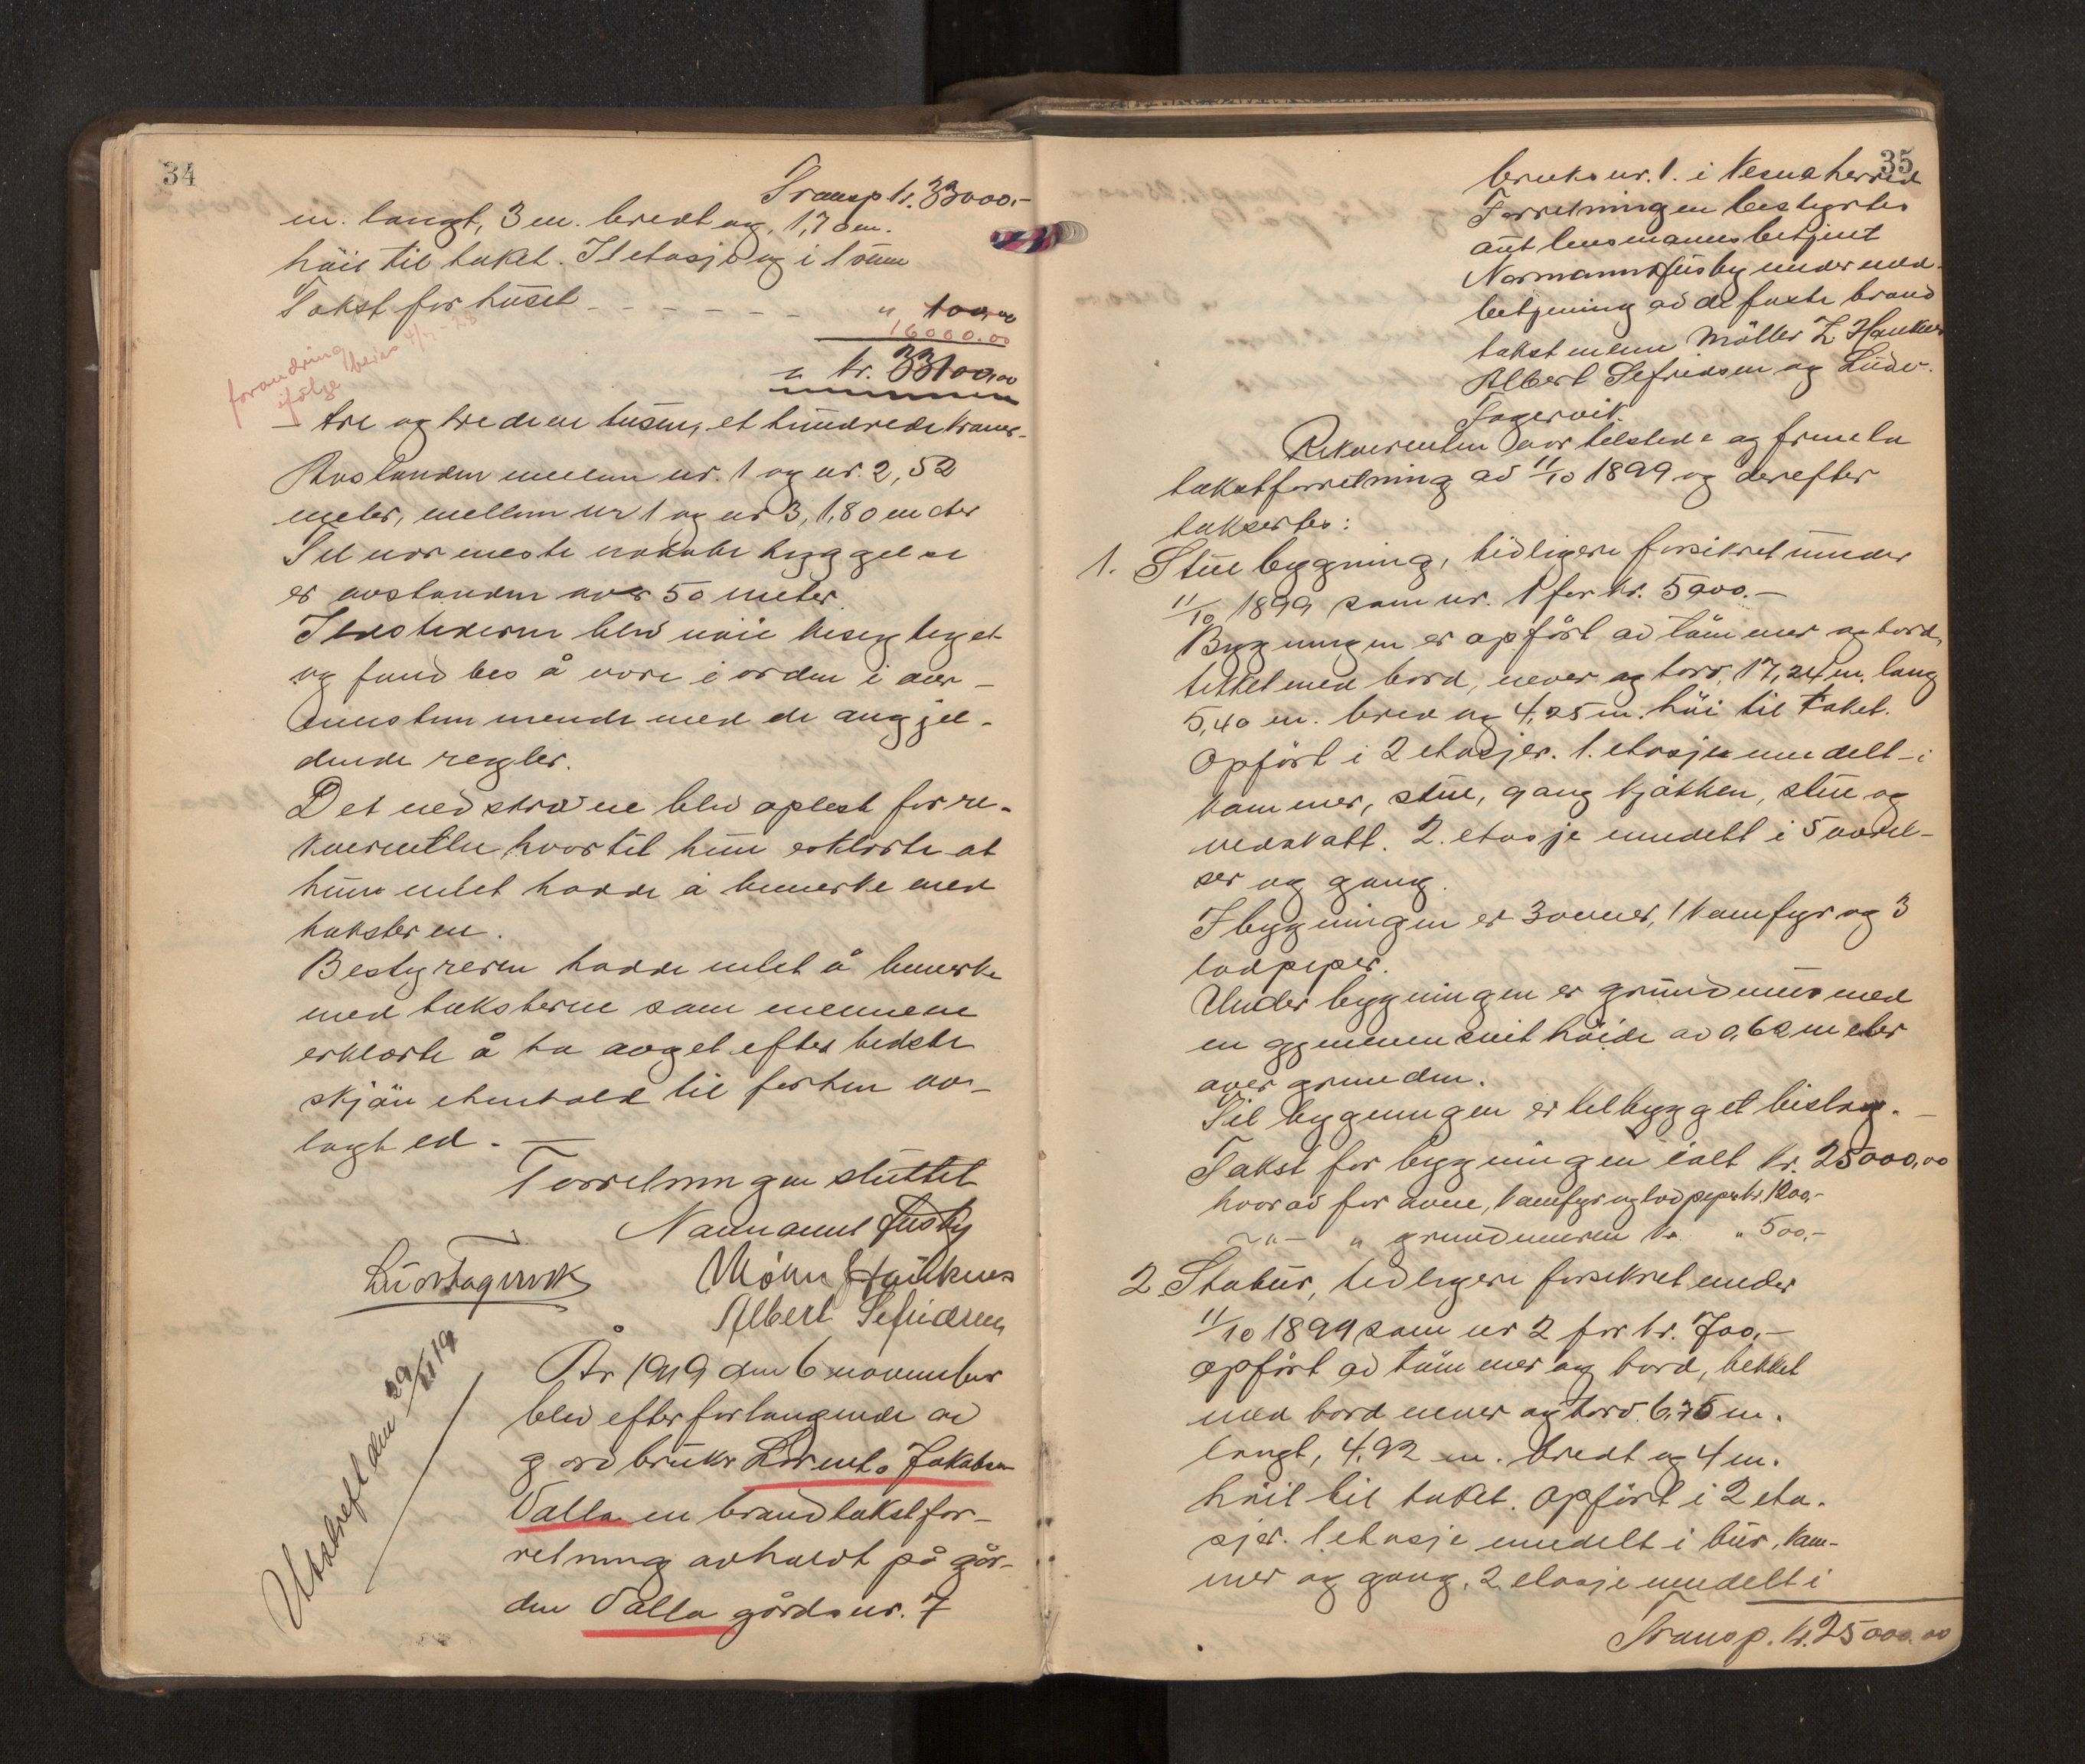 34
Transp kr. 33000.-
m. langt, 3 m. bredt og 1,70 m.
höit til taket. I 1 etasje og i 1 rum
Takst for huset - - - - - - " 100,00
16000.00
kr. 33100,00
forandring
ifölge 4/7-28
- tre og tredive tusen, et hundrede kroner.
Avstanden mellem nr. 1 og nr. 2, 52
meter, mellem nr 1 og nr 3, 1,80 meter
Til nærmeste nabobebyggelse
er avstanden over 50 meter.
Ildstederne blev nöie besigtiget
og fundbes å være i orden i over-
ensstemmende med de angjel-
dende regler.
Det nedskrevne blev oplest for re-
kverenten hvortil hun erklærte at
hun intet hadde å bemerke med
taksteren.
Bestyreren hadde intet å bemerke
med taksterne som mennene
erklærte å ha avget efter bedste
skjön i henhold til fortem av-
lagt ed. -
Forretningen sluttet
Normann Husby
Lüdv Fagervik Möller Hauknes
Albert Sefridsen
Utskreft den 29/11 19
År 1919 den 6 november
blev efter forlangende av
gårdbruker Lorents Jakobsen
Valla en brandtakstfor-
retning avholdt på går-
den Valla gårdsnr. 7
35
bruksnr. 1. i Nesna herred
Forretningen bestyrtes
aut lensmannsbetjent
Normann Husby under med-
betjening av de faste brand
takstmenn Möller Z Hauknes
Albert Sefridsen og Lüdv.
Fagervik.
Rekverenten var tilstede og fremla
takstforretning av 11/10 1899 og derefter
taksertes:
1. Stuebygning, tidligere forsikret under
11/10 1899 som nr. 1 for kr. 5900.-
Bygningen er opfört av tömmer og bord,
tekket med bord, never og torv, 17,24 m. lang
5,40 m. bred og 4,25 m. höi til taket.
Opfört i 2 etasjer. 1. etasje inndelt i
kammer, stue, gang kjökken, stue og
vedskott. 2. etasje inndelt i 5 værel-
ser og gang.
I bygningen er 3 ovner, 1 komfyr og 3
lodpiper.
Under bygningen er grundmur med
en gjennemsnit höide av 0,62 meter
over grunden.
Til bygningen er tilbygget bislag. -
Takst for bygningen ialt kr. 25000,00
hvorav for ovne, komfyr og lodpiper kr. 1200,-
-"- " grundmuren kr. " 500,-
2 Stabur, tidligere forsikret under
11/10 1899 som nr 2 for kr. 700,-
opfört av tömmer og bord, tekket
med bord never og torv. 6,75 m.
langt, 4,92 m. bredt og 4 m.
höit til taket. Opfört i 2 eta-
sjer. 1. etasje inndelt i bur, kam-
mer og gang, 2 etasje inndelt i
Transp. kr. 25000.00